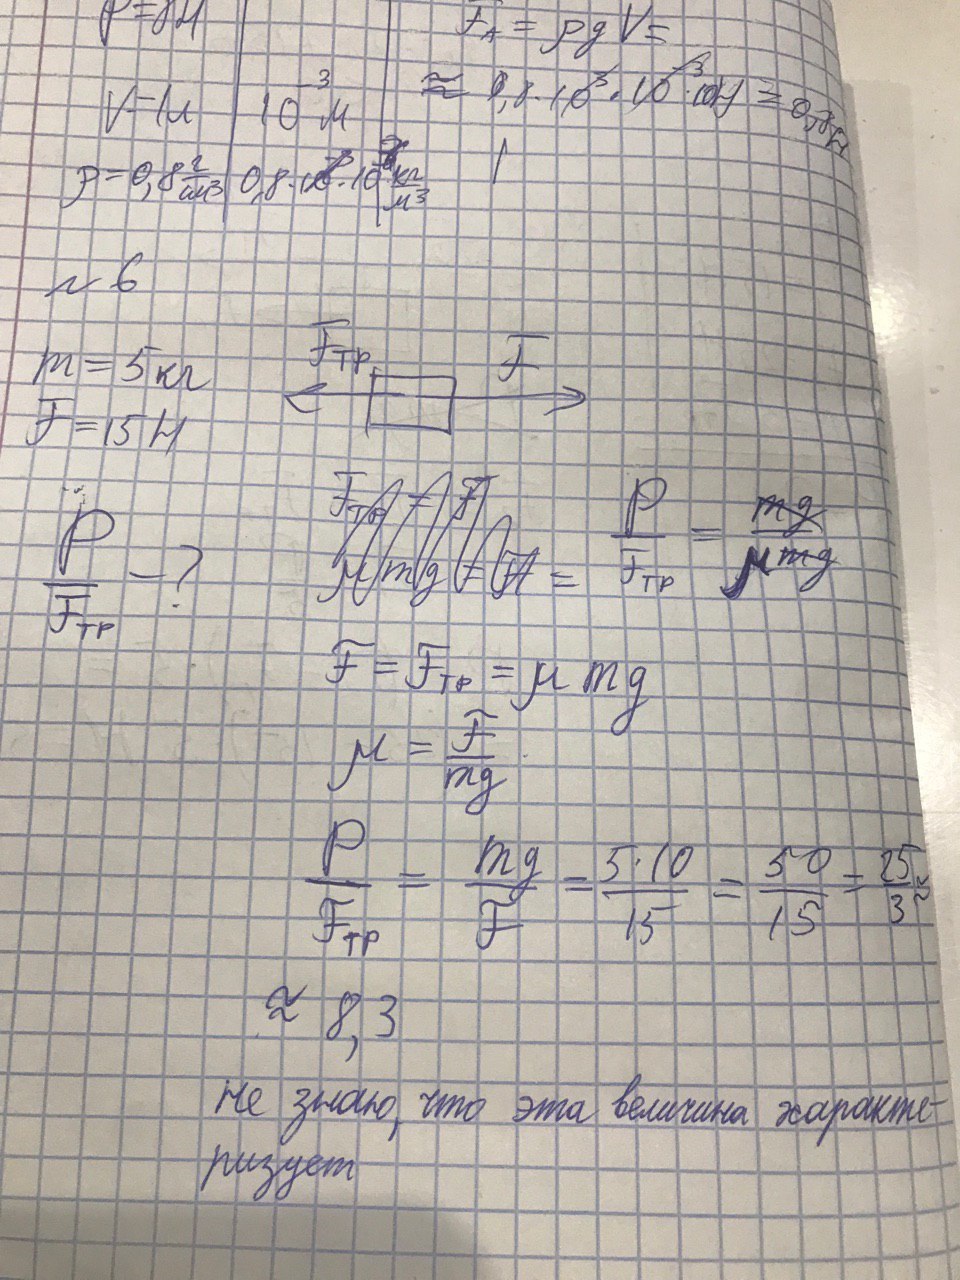 P=8Н
F_A = ρgV=
V=1л 10⁻³ м
≈ 0,8·10³·10⁻³·10Н =
ρ=0,8 г/см³ 0,8·10⁻³·10 кг/м³
№ 6
m = 5 кг
F = 15 Н
F_тр F
P/F_тр - ?
F_тр = F
μmg = F =
P/F_тр = mg/μmg
F = F_тр = μmg
μ = F/mg
P/F_тр = mg/F = 5·10/15 = 50/15 = 25/3 ≈
≈ 8,3
Не знаю, что эта величина характе-
ризует